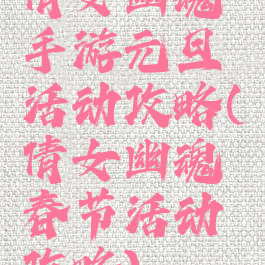 倩女幽魂
手游元旦
活动攻略(
倩女幽魂
春节活动
攻略)